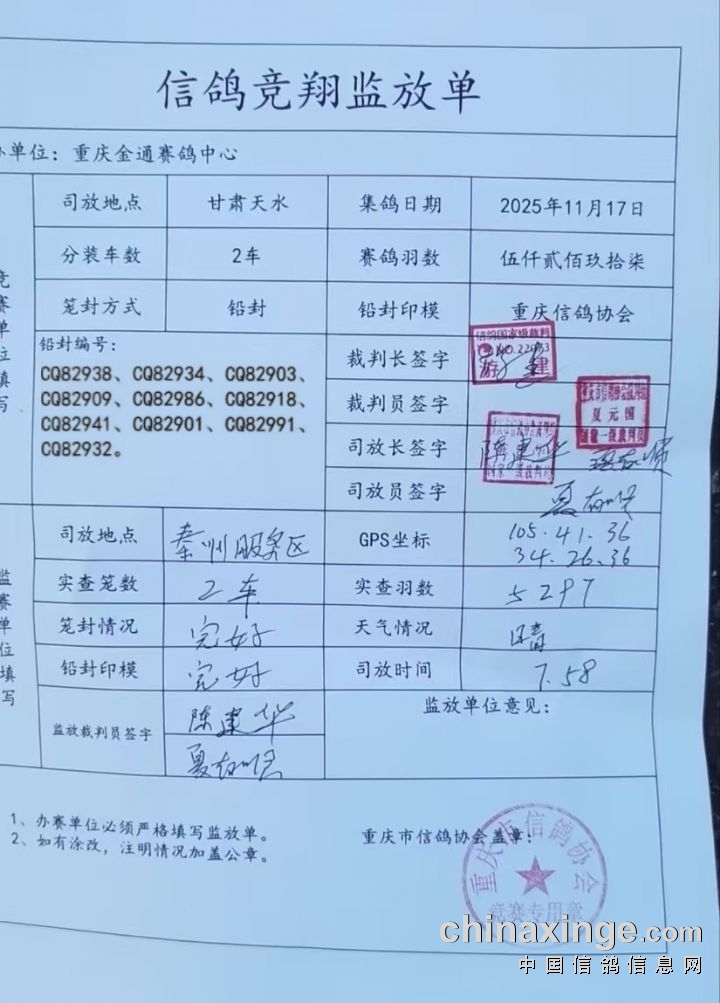 信鸽竞翔监放单
办单位：重庆金通赛鸽中心
竞赛单位填写
司放地点 甘肃天水 集鸽日期 2025年11月17日
分装车数 2车 赛鸽羽数 伍仟贰佰玖拾柒
笼封方式 铅封 铅封印模 重庆信鸽协会
铅封编号：
CQ82938、CQ82934、CQ82903、
CQ82909、CQ82986、CQ82918、
CQ82941、CQ82901、CQ82991、
CQ82932。
裁判长签字
信鸽国家级裁判
游建
裁判员签字
夏元国
国家一级裁判员
司放长签字 陈建华
司放员签字
监赛单位填写
司放地点 秦州服务区 GPS坐标 105.41.36
34.26.36
实查笼数 2车 实查羽数 5297
笼封情况 完好 天气情况 晴
铅封印模 完好 司放时间 7.58
监放裁判员签字 陈建华
监放单位意见：
1、办赛单位必须严格填写监放单。
2、如有涂改，注明情况加盖公章。
重庆市信鸽协会盖章：
重庆市信鸽协会
竞赛专用章
chinaxinge.com
中国信鸽信息网